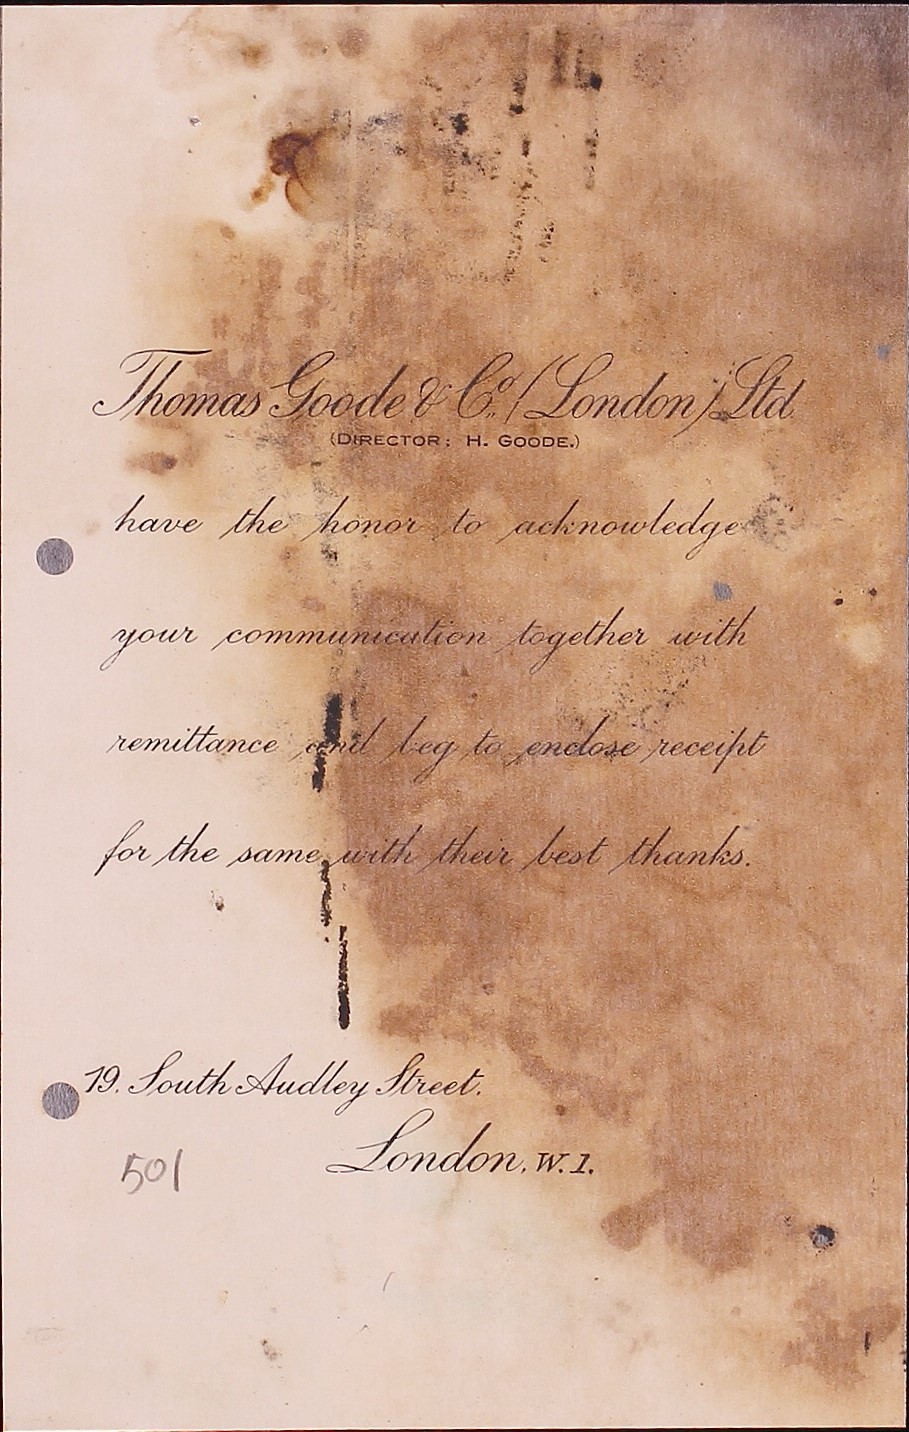 Thomas Goode & Co. (London) Ltd.
(DIRECTOR: H. GOODE.)
have the honor to acknowledge
your communication together with
remittance and beg to enclose receipt
for the same, with their best thanks.
19. South Audley Street.
London. W. 1.
501